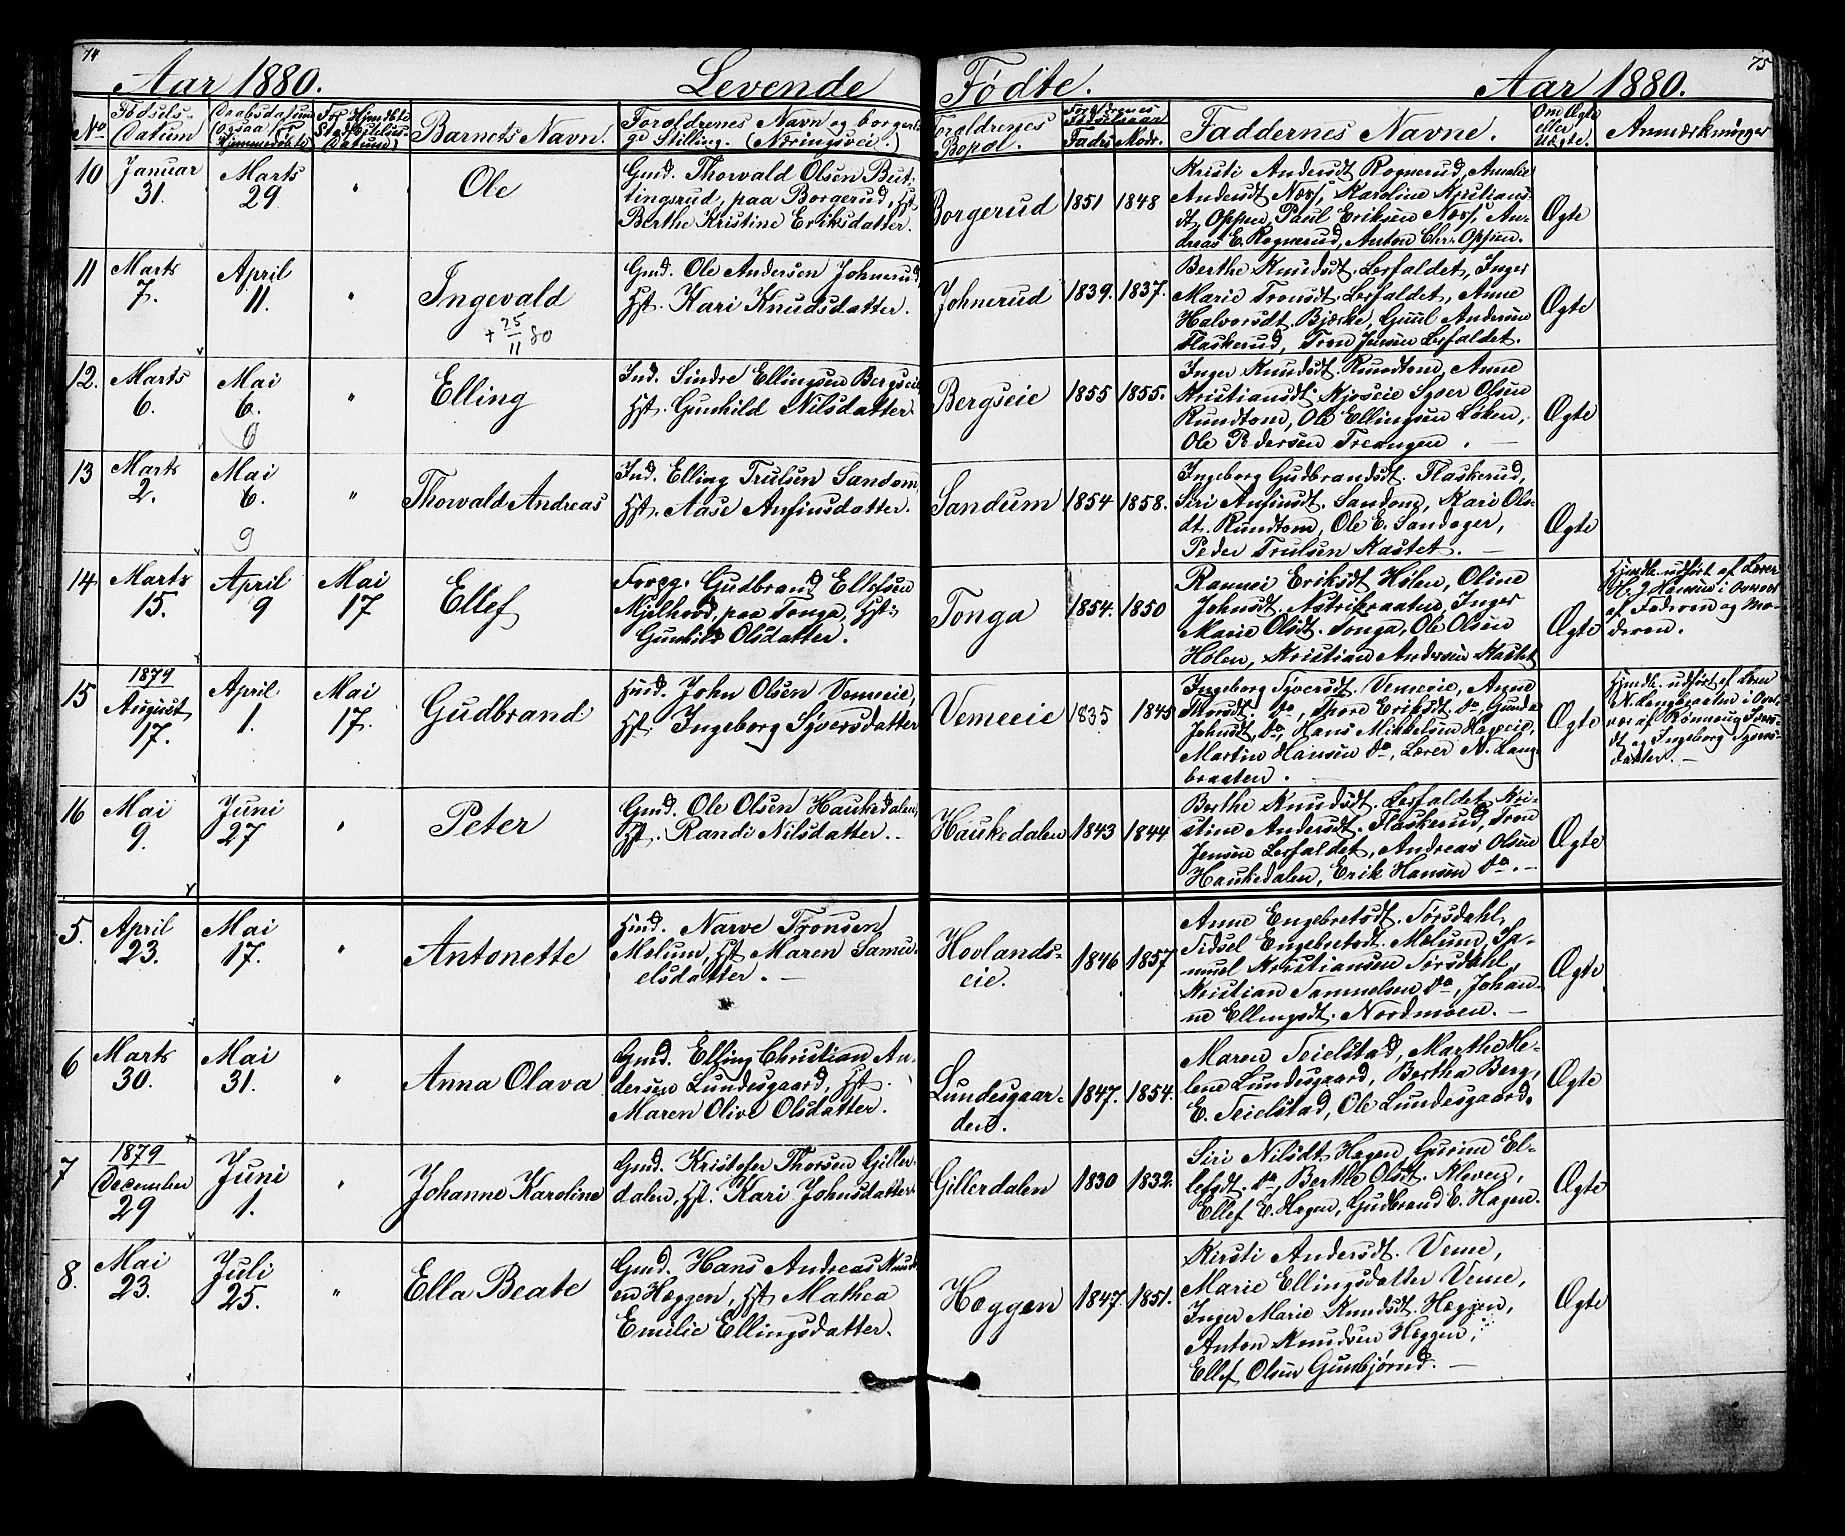 74
Aar 1880. Levende Fødte. Aar 1880.
75
No Fødsels-Datum Daabsdatum (ogsaa Hjemmedøbte) Barnets Navn. Forældrenes Navn og borgerli-
ge Stilling. (Næringsvei.) Forældrenes Bopæl. Forældrenes Fødselsaar Fadrs Modr. Faddernes Navne. Om Ægte eller Uægte. Anmærkninger
10 Januar 31. Marts 29. " Ole
Gmd. Thorwald Olsen But-
tingsrud, paa Borgerud, Hst
Berthe Kristine Eriksdatter.
Borgerud 1851 1848
Kristi Andersdt Rognerud, Amalie
Andersdt Næss, Karoline Kristians-
dt, Oppen, Paul Eriksen Næss, An-
dreas E. Rognerud, Anton Chr. Oppen.
Ægte
11 Marts 7. April 11. " Ingevald
+ 25/11 80
Gmd. Ole Andersen Johnerud,
Hst. Kari Knudsdatter.
Johnerud 1839. 1837.
Berthe Knudsdt. Lesfaldet, Inger
Marie Tronsdt. Lesfaldet, Anne
Halvorsdt. Bjerke, Guul Andersen
Flaskerud, Tron Jensen Lesfaldet.
Ægte
12. Marts 6. Mai 6. " Elling
6
Ind. Sindre Ellingsen Bergseie
Hst. Gunhild Nilsdatter.
Bergseie 1855 1855.
Inger Knudsdt. Rundtom, Anne
Kristiansdt. Syver Olsen
Rundtom, Ole Ellingsen Løken,
Ole Pedersen Treangen. —
Ægte
13 Marts 2. Mai 6. " Thorvald Andreas
9
Ind. Elling Trulsen Sandom,
Hst. Aase Anfinsdatter.
Sandum 1854 1858.
Ingeborg Gudbrandsdt. Flaskerud,
Siri Anfinsdt. Sandom, Kari Ols-
dt. Rundtom, Ole E. Sandager,
Peder Trulsen Kastet. —
Ægte
14. Marts 15. April 9 Mai 17 Ellef
Forpg. Gudbrand Ellefsen
Mjelhrod, paa Tonga, Hst:
Gunhild Olsdatter.
Tonga 1854. 1850
Rannei Eriksdt Holen, Oline
Johnsdt. Inger
Marie Olsdt. Tonga, Ole Olsen
Holen, Kristian Andersen Kastet
Ægte
Hjmdb. udført af Lærer
H. J. Hansen i Overvær
af Faderen og Mo-
deren.
15 1879 August 17. April 1. Mai 17. Gudbrand
Husd. John Olsen Vemeeie,
Hst. Ingeborg Syversdatter
Vemeeie 1835 1845
Ingeborg Syversdt. Vemeeie, Anne
Thorsdt. do, Thore Eriksdt. do, Gunda
Johnsdt, do, Hans Mikkelsen
Martin Hansen do, Lærer N. Lang-
braaten.
Ægte
Hjmdb. udført af Lærer
N. Langbraaten i Over-
vær af Rønnaug Syvers-
dt og Ingeborg Syvers-
datter. —
16 Mai 9. Juni 27 " Peter
Gmd. Ole Olsen Haukedalen,
Hst. Randi Nilsdatter. —
Haukedalen 1843 1844
Berthe Knudsdt. Lesfaldet, Kri-
stine Andersdt. Flaskerud, Tron
Jensen Lesfaldet, Andreas Olsen
Haukedalen, Erik Hansen do. —
Ægte
5. April 23. Mai 17. " Antonette
Husd. Narve Tronsen
Molum, Hst Maren Samu-
elsdatter. —
Hovlands-
eie. 1846 1857
Anne Engebretsdt. Torsdahl,
Sidsel Engebretsdt. Molum, Sa-
muel Kristiansen Torsdahl,
Kristian Samuelsen do, Johan-
ne Ellingsdt. Nordmoen. —
Ægte
6 Marts 30. Mai 31. " Anna Olava
Gmd. Elling Christian An-
dersen Lundesgaard, Hst.
Maren Olive Olsdatter.
Lundesgaar-
den. 1847. 1854.
Maren Teielstad, Marthe He-
lene Lundesgaard, Bertha Berg,
E. Teielstad, Ole Lundesgaard.
Ægte
7 1879 December 29 Juni 1. " Johanne Karoline
Gmd. Kristofer Thorsen Giller-
dalen, Hst. Kari Johnsdatter.
Gillerdalen 1830 1832.
Siri Nilsdt Hagen, Gurine El-
lefsdt. do, Berthe Olsdt. Kleven,
Ellef E. Hagen, Gudbrand E. Hagen.
Ægte
8. Mai 23. Juli 25. " Ella Beate
Gmd. Hans Andreas Knud-
en Heggen, Hst Mathea
Emilie Ellingsdatter.
Heggen 1847. 1851.
Kirsti Andersdt. Veme,
Marie Ellingsdatter Veme,
Inger Marie Knudsdt. Heggen,
Anton Knudsen Heggen,
Ellef Olsen Gunbjørnd. —
Ægte